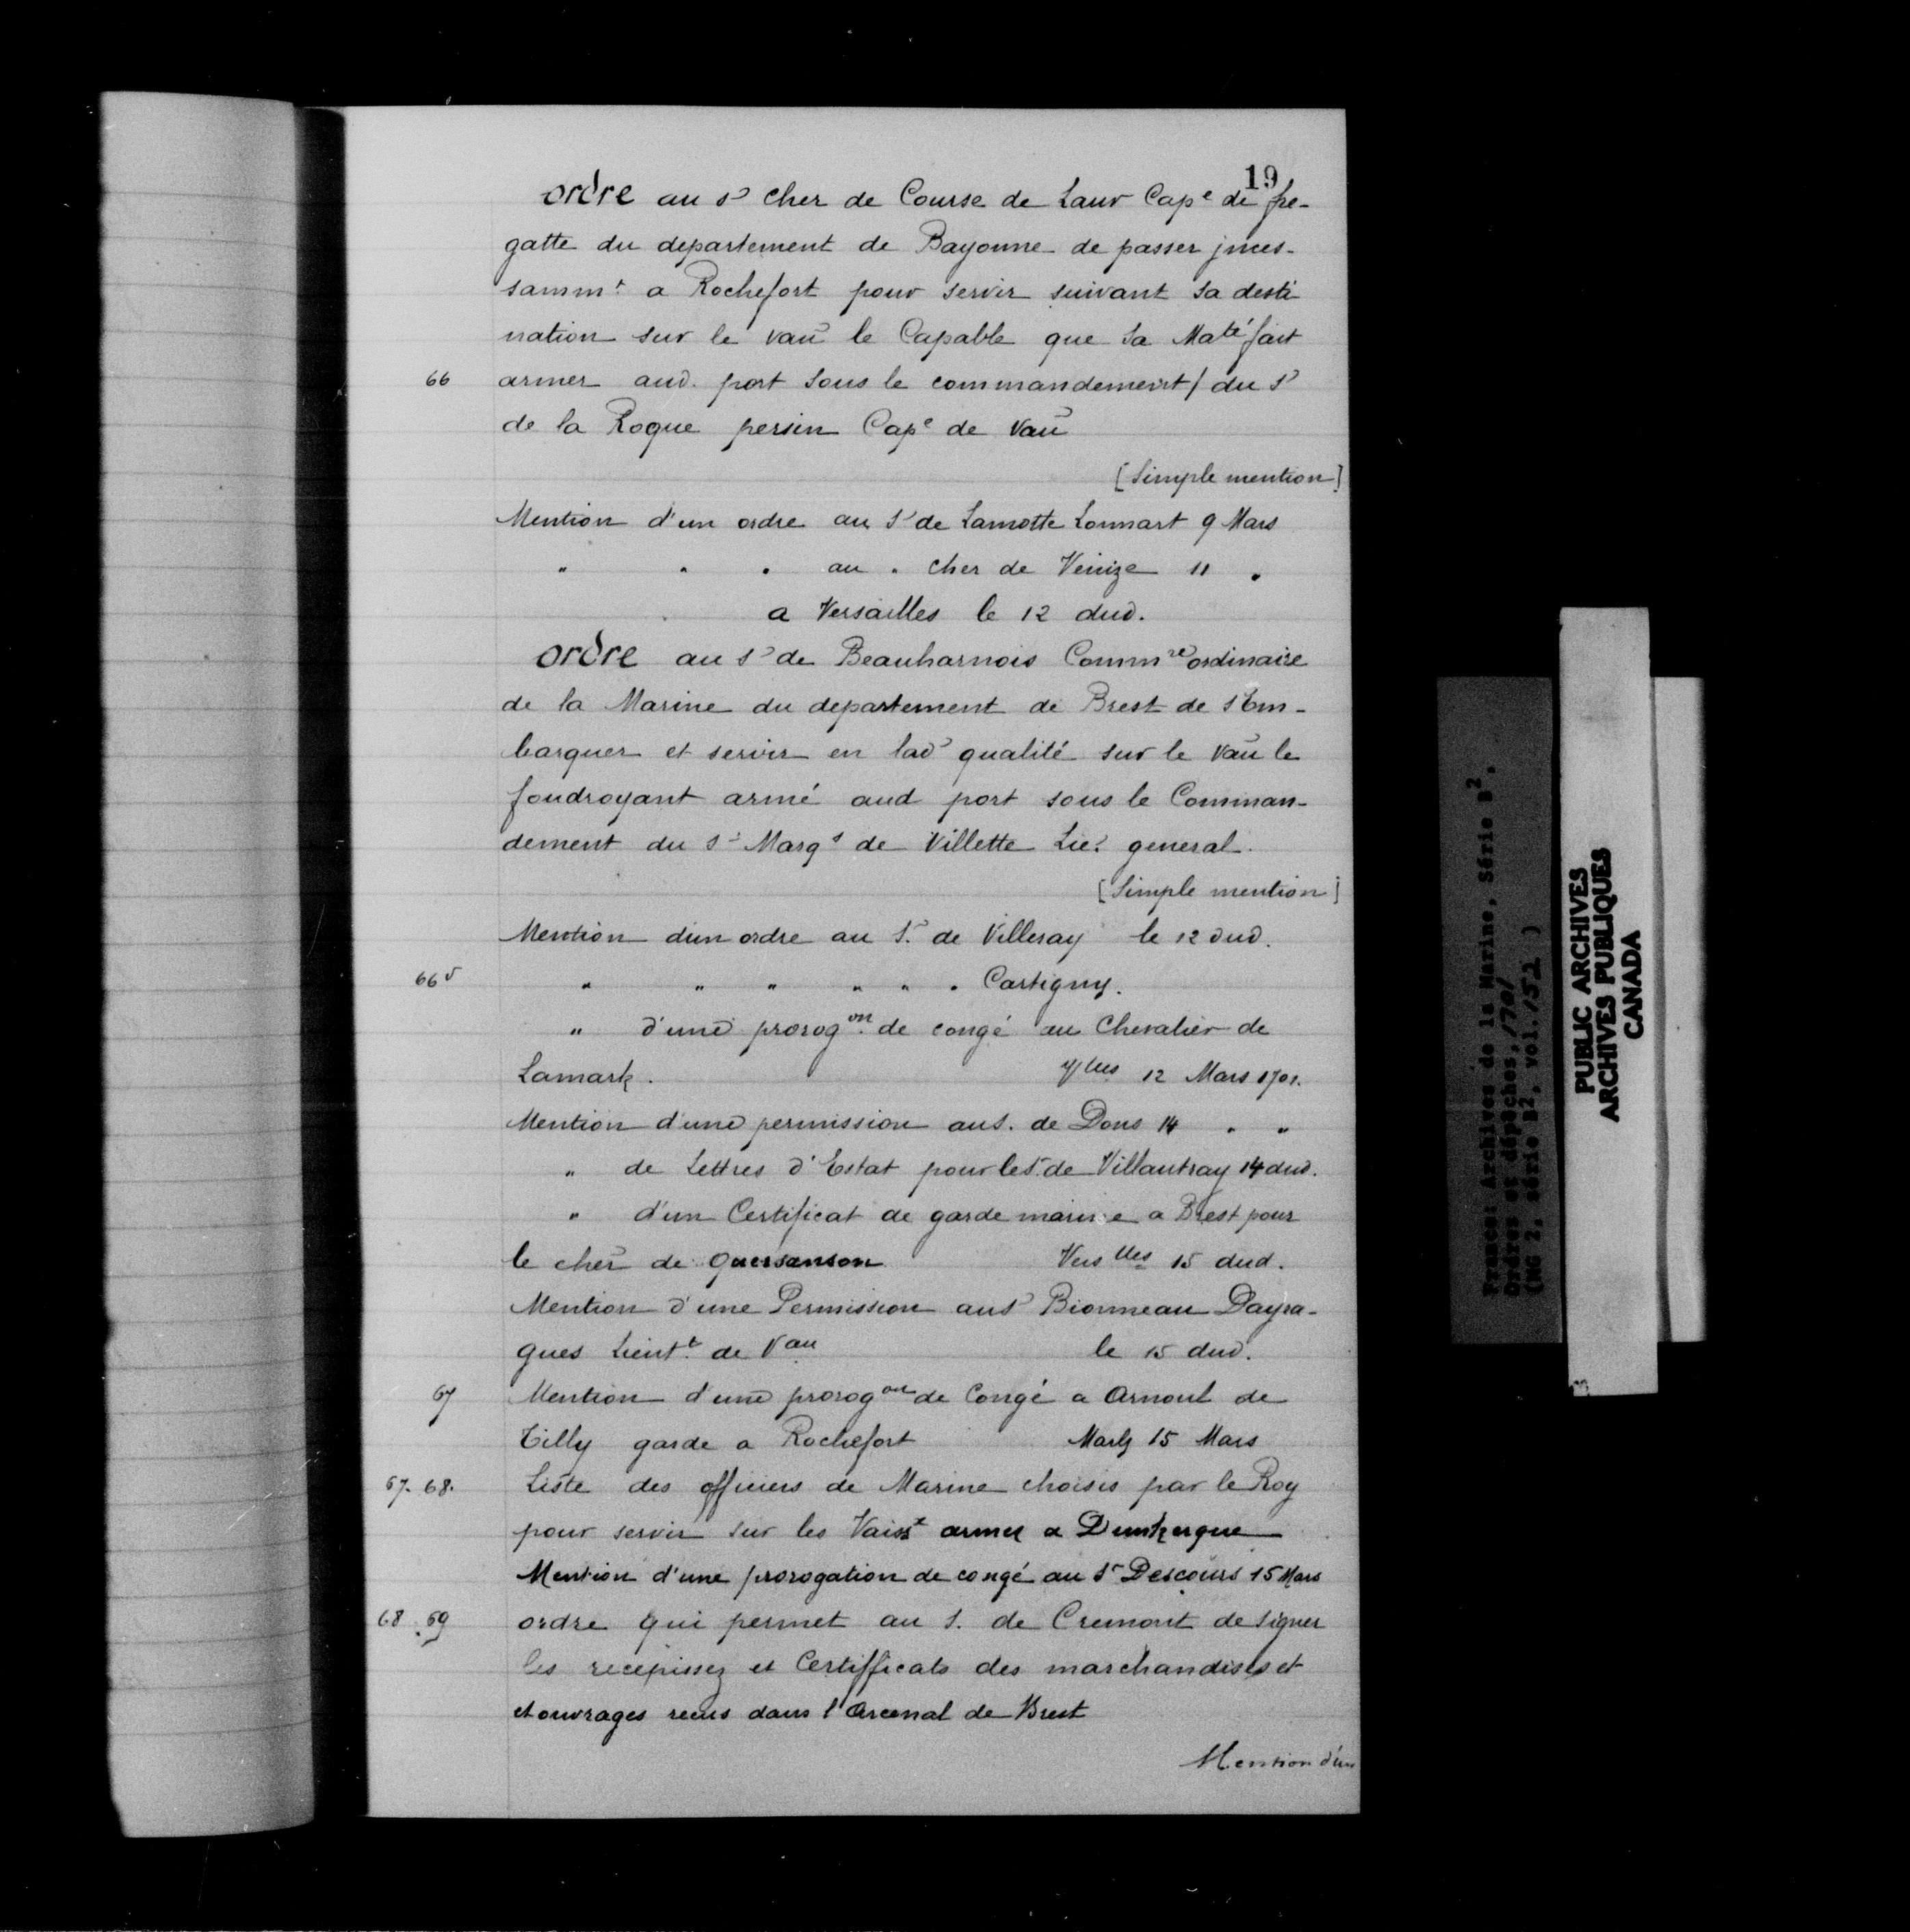 19
ordre au sr cher de Course de Laur Cape de fre-
gatte du departement de Bayonne de passer jnces-
sammt a Rochefort pour servir suivant sa desti
nation sur le vau le Capable que Sa Maté fait
66 armer aud. port sous le commandement / du sr
de la Roque persin Cape de vau
[Simple mention]
Mention d'un ordre au sr de Lamotte Lonnart 9 Mars
" " " au " cher de Venize 11 "
a Versailles le 12 dud.
ordre au sr de Beauharnois Commre ordinaire
de la Marine du departement de Brest de s'Em-
barquer et servir en lad qualité sur le vau le
foudroyant armé aud port sous le Comman-
dement du sr Marqs de Villette Lieut general.
[Simple mention]
Mention d'un ordre au S. de Villeray le 12 dud.
66v " " " " " " Cartigny.
" d'une prorogon de congé au Chevalier de
Lamark. Vlles 12 Mars 1701.
Mention d'une permission au S. de Dons 14 " "
" de Lettres d'Estat pour le S. de Villautray 14 dud.
" d'un Certificat de garde marine a Brest pour
le cher de Quersanson Verslles 15 dud.
Mention d'une Permission au Sr Bionneau Dayra-
gues Lieutt. de Vau le 15 dud.
67 Mention d'une prorogon de Congé a Arnoul de
Tilly garde a Rochefort Marly 15 Mars
67. 68. Liste des officiers de Marine choisis par le Roy
pour servir sur les Vaissx armez a Dunkerque
Mention d'une prorogation de congé au Sr Descours 15 Mars
68. 69 ordre qui permet au S. de Cremont de signer
les recepissez et Certifficats des marchandises et
et ouvrages recus dans l'Arcenal de Brest
Mention d'un
France: Archives de la Marine, Série B2,
Ordres et dépêches, 1701
(MG 2, série B2, vol. 152 )
PUBLIC ARCHIVES
ARCHIVES PUBLIQUES
CANADA